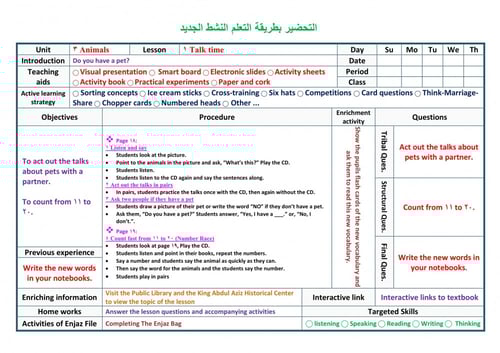 التحضير بطريقة التعلم النشط الجديد
Unit ٣ Animals Lesson ١ Talk time Day Su Mo Tu We Th
Introduction Do you have a pet? Date
Teaching aids Visual presentation Smart board Electronic slides Activity sheets Period
Activity book Practical experiments Paper and cork Class
Active learning strategy Sorting concepts Ice cream sticks Cross-training Six hats Competitions Card questions Think-Marriage-
Share Chopper cards Numbered heads Other ...
Objectives Procedure Enrichment activity Questions
To act out the talks
about pets with a
partner.
To count from ١١ to
٢٠.
Previous experience
Write the new words
in your notebooks.
Page ١٨:
١ Listen and say
Students look at the picture.
Point to the animals in the picture and ask, "What's this?" Play the CD.
Students listen.
Students listen to the CD again and say the sentences along.
Act out the talks in pairs
In pairs, students practice the talks once with the CD, then again without the CD.
Ask two people if they have a pet
Students draw a picture of their pet or write the word "NO" if they don't have a pet.
Ask them, "Do you have a pet?" Students answer, "Yes, I have a ___." or, "No, I
don't.".
Page ١٩:
Count fast from ١١ to ٢٠ (Number Race)
Students look at page ١٩, Play the CD.
Students listen and point in their books, repeat the numbers.
Say a number and students say the animal as quickly as they can.
Then say the word for the animals and the students say the number.
Students play in pairs
Show the pupils flash cards of the new vocabulary and
ask them to read this new vocabulary.
Tribal Ques.
Act out the talks about
pets with a partner.
Structural Ques.
Count from ١١ to ٢٠.
Final Ques.
Write the new words in
your notebooks.
Enriching information Visit the Public Library and the King Abdul Aziz Historical Center
to view the topic of the lesson
Interactive link Interactive links to textbook
Home works Answer the lesson questions and accompanying activities Targeted Skills
Activities of Enjaz File Completing The Enjaz Bag listening Speaking Reading Writing Thinking